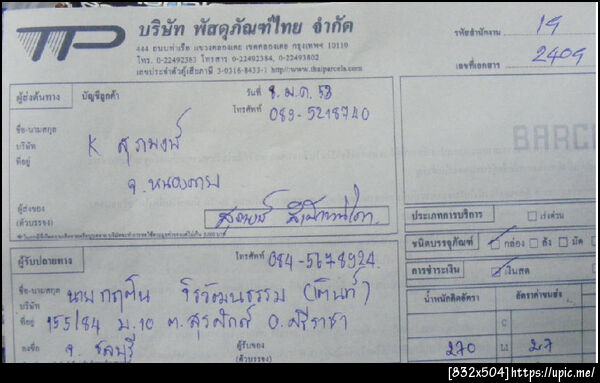 TP บริษัท พัสดุภัณฑ์ไทย จำกัด
444 ถนนท่าเรือ แขวงคลองเตย เขตคลองเตย กรุงเทพฯ 10110
โทร. 0-22492383 โทรสาร 0-22492384, 0-22493802
เลขประจำตัวผู้เสียภาษี 3-0316-8433-1 http://www.thaiparcels.com
รหัสสำนักงาน 19
เลขที่เอกสาร 2409
ผู้ส่งต้นทาง บัญชีลูกค้า วันที่ 8 ม.ค. 53
โทรศัพท์ 089-5218740
ชื่อ-นามสกุล
บริษัท K สุภพงษ์
ที่อยู่ จ.หนองคาย
BARC
ผู้ส่งของ
(ตัวบรรจง)
ประเภทการบริการ เร่งด่วน
ชนิดบรรจุภัณฑ์ กล่อง ลัง มัด
การชำระเงิน เงินสด
ผู้รับปลายทาง โทรศัพท์ 084-5678924
ชื่อ-นามสกุล นาย จิรวัฒนธรรม
บริษัท
ที่อยู่ 155/84 ม.10 ต.สุรศักดิ์ อ.ศรีราชา
จ.ชลบุรี
ลงชื่อ ผู้รับของ
(ตัวบรรจง)
น้ำหนักคิดอัตรา อัตราค่าขนส่ง
C
270 L1 27
[832x504]https://upic.me/